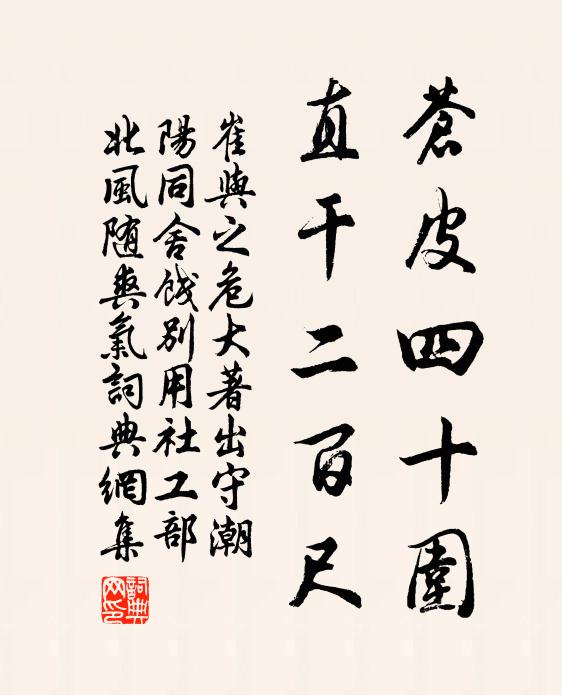 蒼皮四十圍
直干二百尺
崔與之危大著出守潮
陽同舍餞別用社工部
北風隨爽氣詞典網集
詞典
网印